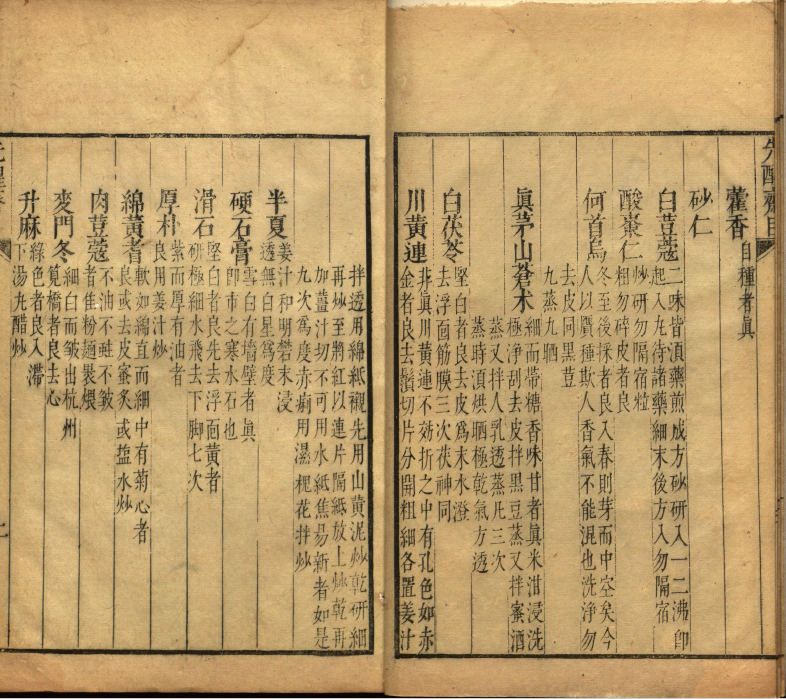 先醒齋目
藿香
自種者真
砂仁
白荳蔻
二味皆湏藥煎成方砂研入一二沸即
起入九待諸藥細末後方入勿隔宿
酸棗仁
炒研勿隔宿粒
粗勿碎皮者良
何首烏
冬至後採者良入春則芽而中空矣今
人以贗種欺人香氣不能混也洗淨勿
去皮同黑荳
九蒸九晒
眞茅山蒼术
細而帶糖香味甘者眞米泔浸洗
極淨刮去皮拌黑豆蒸又拌蜜酒
蒸又拌人乳透蒸凡三次
蒸時湏烘晒極乾氣方透
白茯苓
堅白者良去皮爲末水澄
去浮面筋膜三次茯神同
川黃連
非眞川黃連不効折之中有孔色如赤
金者良去鬚切片分開粗細各置姜汁
拌透用綿紙襯先用山黃泥炒乾研細
再炒至將紅以連片隔紙放上炒乾再
加薑汁切不可用水紙焦易新者如是
九次爲度赤痢用濕槐花拌炒
半夏
姜汁和明礬末浸
透無白星爲度
硬石膏
雪白有墻壁者眞
即市之寒水石也
滑石
堅白者良先去浮面黃者
研極細水飛去下脚七次
厚朴
紫而厚有油者
良用姜汁炒
綿黃耆
軟如綿直而細中有菊心者
良或去皮蜜炙或塩水炒
肉荳蔻
不油不蛀不皺
者佳粉麺裹煨
麥門冬
細白而皺出杭州
筧橋者良去心
升麻
綠色者良入滯
下湯九醋炒